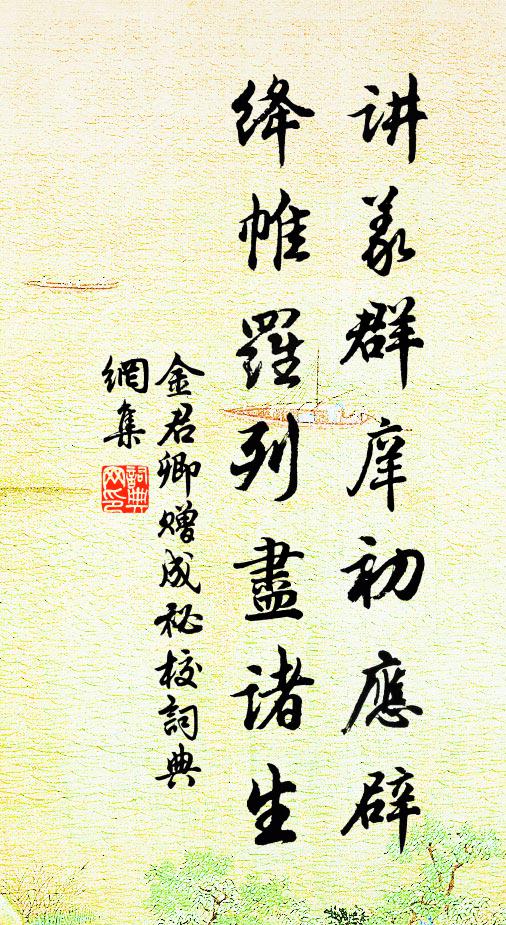 讲義群庠初應辟
绛帷羅列盡诸生
金君卿赠成秘校詞典
網集
詞典網印